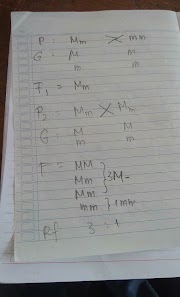 P : Mm × mm
G : M m
m m
F1 = Mm
P2 : Mm × Mm
G : M M
m m
F = MM
Mm } 3M-
Mm
mm } 1mm
Rf 3 : 1